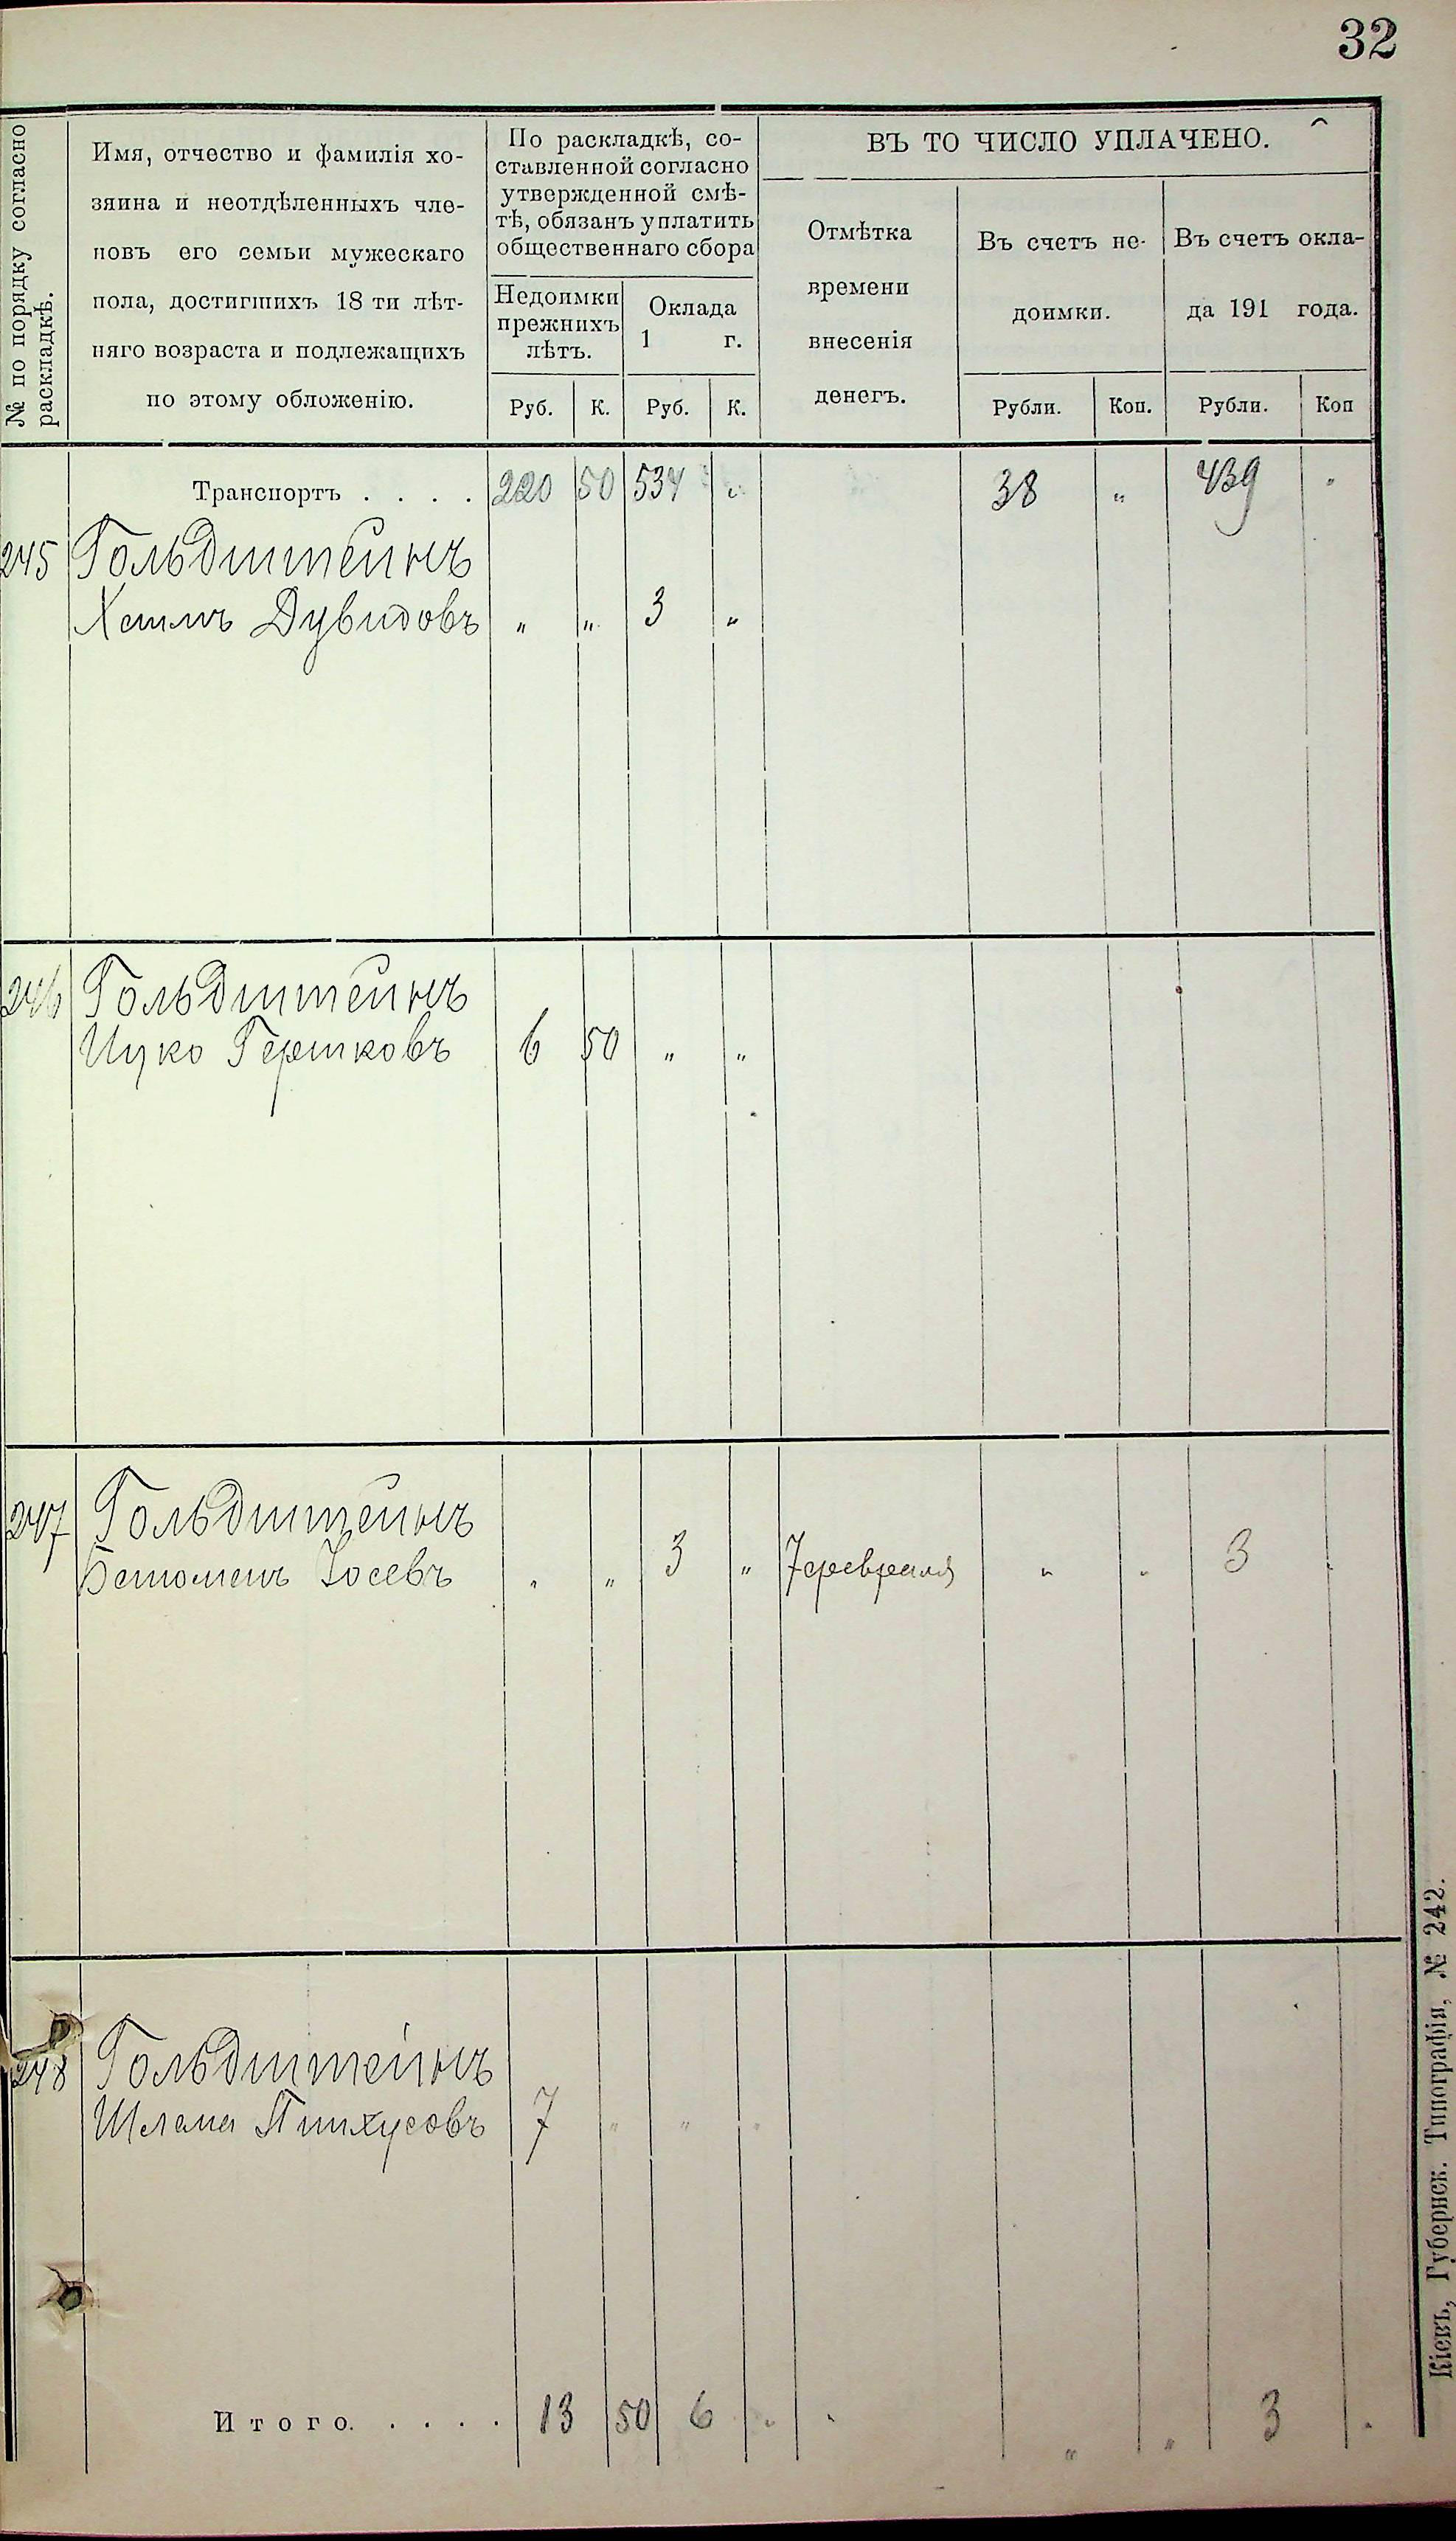 32
№ по порядку согласно раскладкѣ.
Имя, отчество и фамилія хо-
зяина и неотдѣленныхъ чле-
новъ его семьи мужескаго
пола, достигшихъ 18 ти лѣт-
няго возраста и подлежащихъ
по этому обложенію.
По раскладкѣ, со-
ставленной согласно
утвержденной смѣ-
тѣ, обязанъ уплатить
общественнаго сбора
Недоимки
прежнихъ
лѣтъ.
Оклада
1 г.
Руб. К. Руб. К.
ВЪ ТО ЧИСЛО УПЛАЧЕНО.
Отмѣтка
времени
внесенія
денегъ.
Въ счетъ не-
доимки.
Рубли. Коп.
Въ счетъ окла-
да 191 года.
Рубли. Коп
Транспортъ . . . . 220 50 534 „ 38 „ 439 „
245 Гольдштейнъ
Хаимъ Дувидовъ „ „ 3 „
246 Гольдштейнъ
Ицко Гершковъ 6 50 „ „
247 Гольдштейнъ
Іосевъ „ „ 3 „ 7 февраля „ „ 3 „
248 Гольдштейнъ
Шлема Пинхусовъ 7 „ „ „
Итого. . . . . 13 50 6 „ „ „ 3 „
Кіевъ, Губернск. Типографія, № 242.